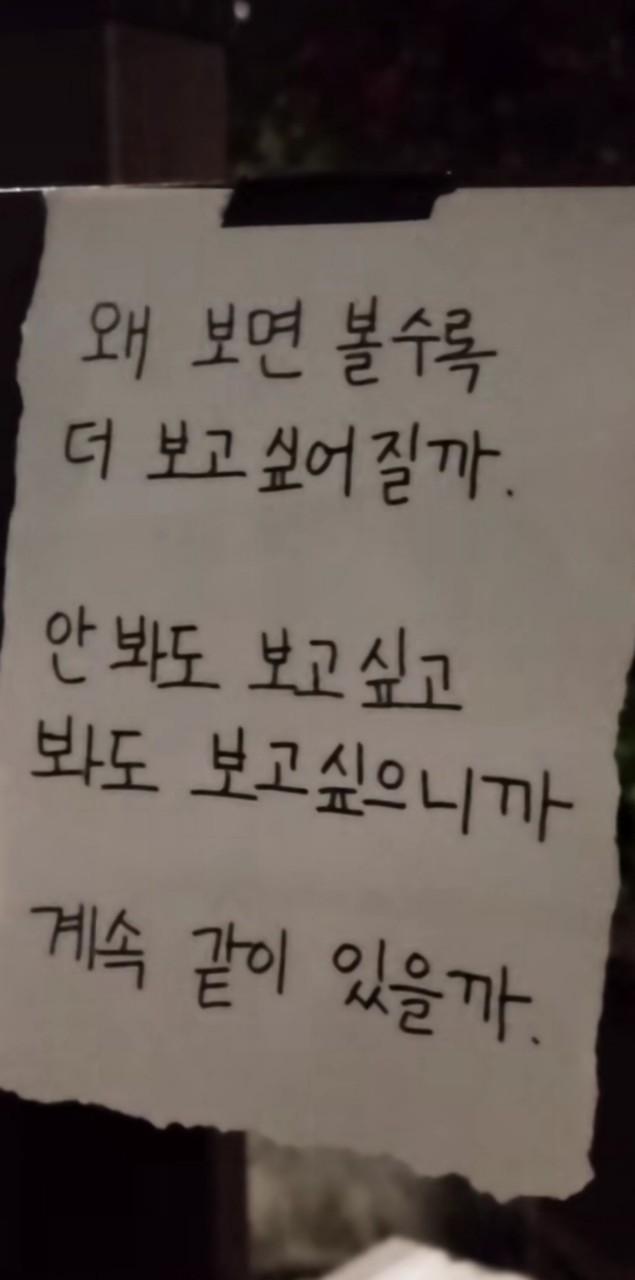 왜 보면 볼수록
더 보고싶어질까.
안봐도 보고싶고
봐도 보고싶으니까
계속 같이 있을까.